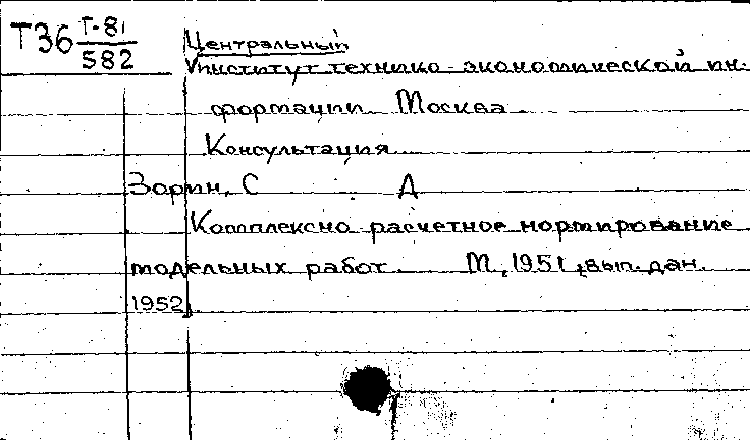 Т36 Т-81/582
Центральный
институт технико-экономической ин-
формации. Москва
Консультация
Зорин, С Д
Комплексно расчетное нормирование
модельных работ. М, 1951, вып. дан.
1952